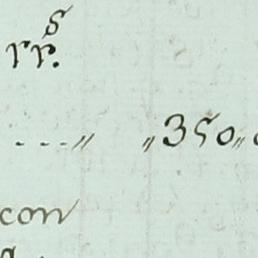 rr.s
...„ „350„
con